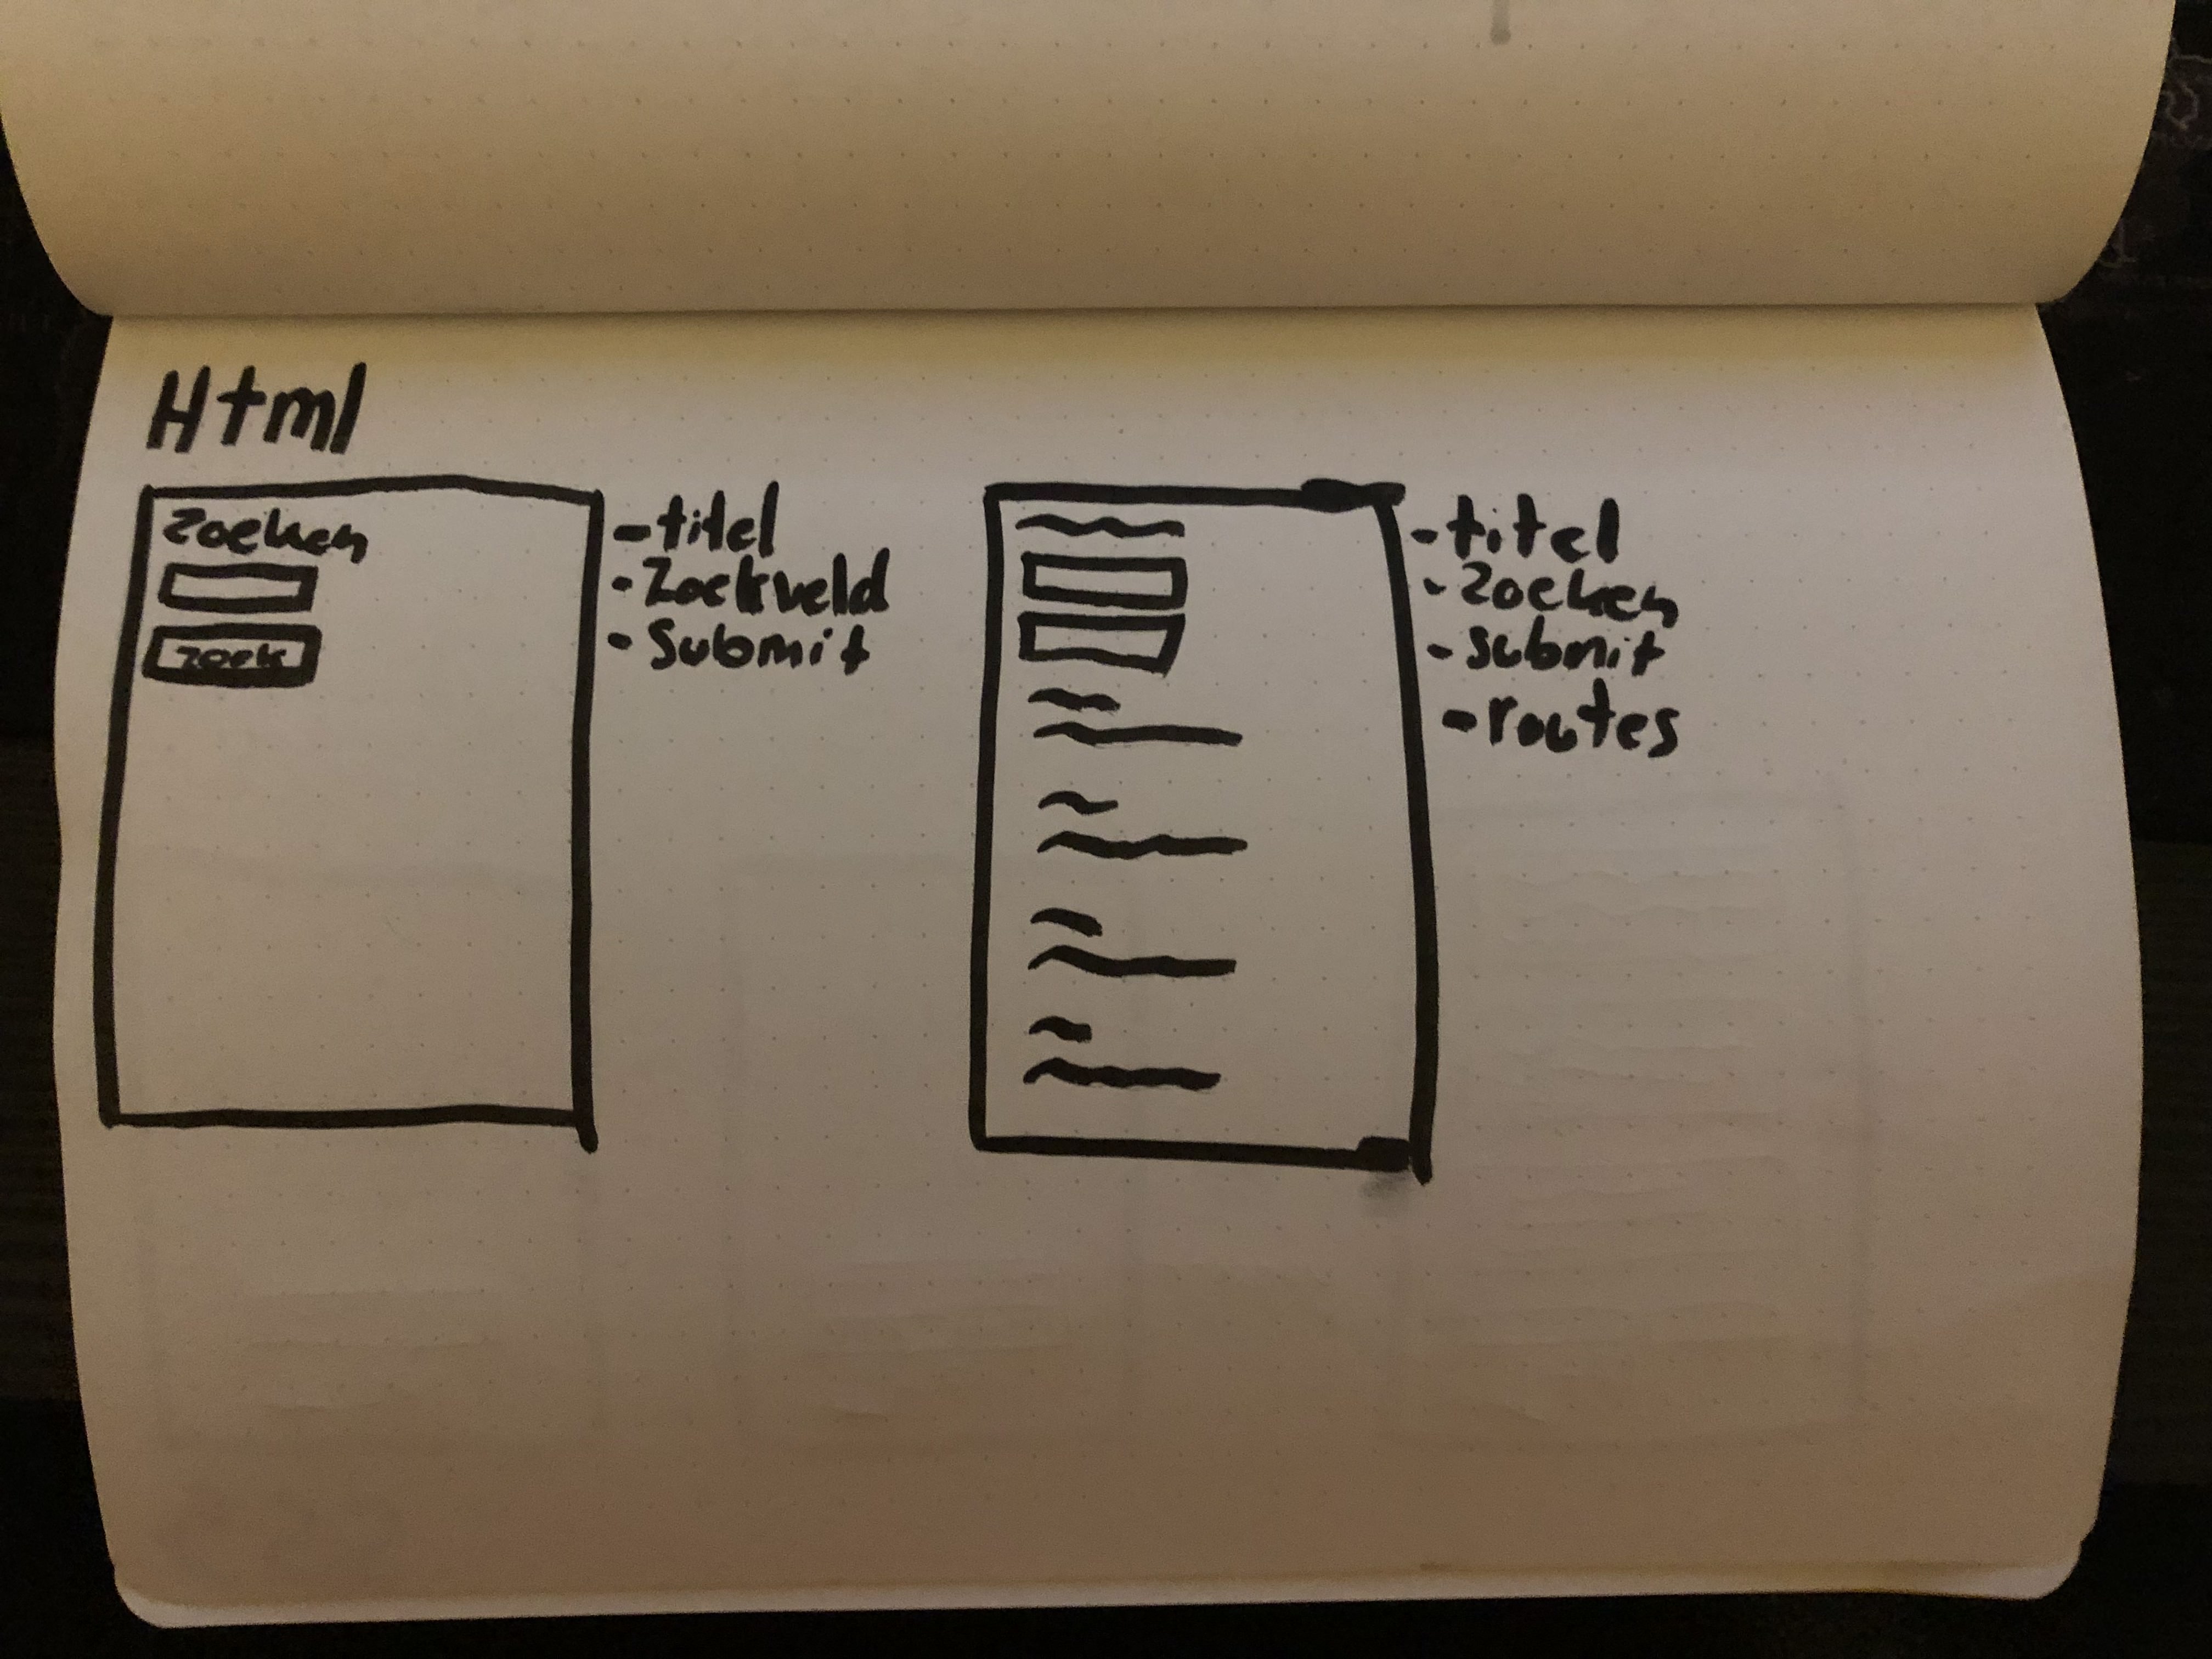 Html
Zoeken
zoek
- titel
- Zoekveld
- Submit
- titel
- Zoeken
- submit
- routes